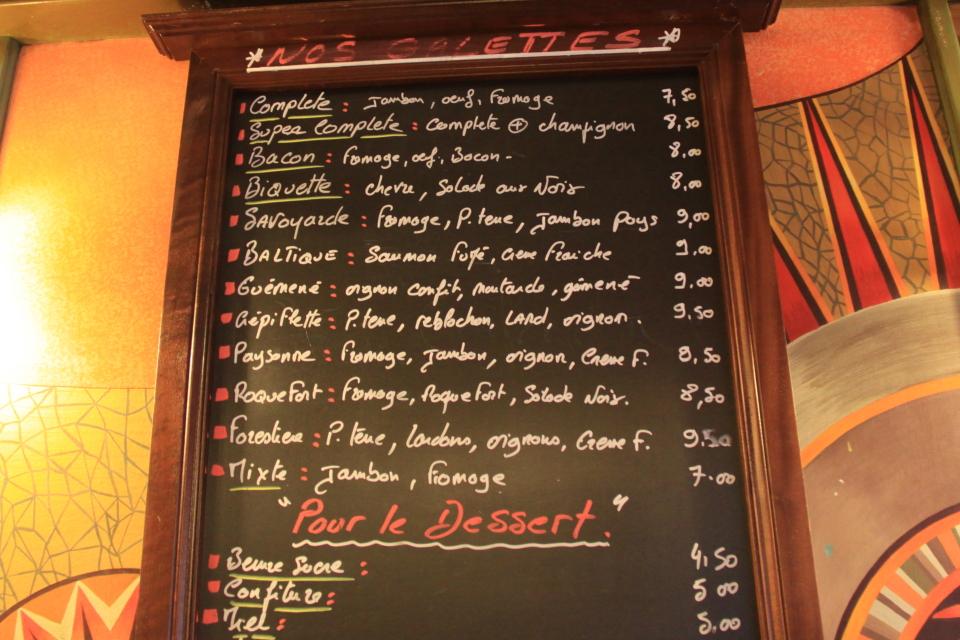 * NOS GALETTES *
Complete : Jambon, oeuf, Fromage 7,50
Super Complete : Complete + champignon 8,50
Bacon : fromage, oef, Bacon - 8,00
Biquette : chevre, Salade aux Noix 8,00
SAVoyarde : fromage, P. terre, Jambon pays 9,00
BALTiQUE : Saumon Fumé, creme Fraiche 9.00
Guémené : oignon confit, moutarde, gémené 9.00
CrêpiFlette : P. terre, reblochon, LARD, oignon 9,50
Paysanne : fromage, Jambon, oignon, Creme F. 8,50
Roquefort : Fromage, Roquefort, Salade Noix. 8,50
Forestiere : P. terre, lardons, oignons, Creme F. 9.50
Mixte : Jambon, fromage 7.00
"Pour le Dessert."
Beurre Sucre : 4,50
Confiture : 5 00
Miel : 5.00